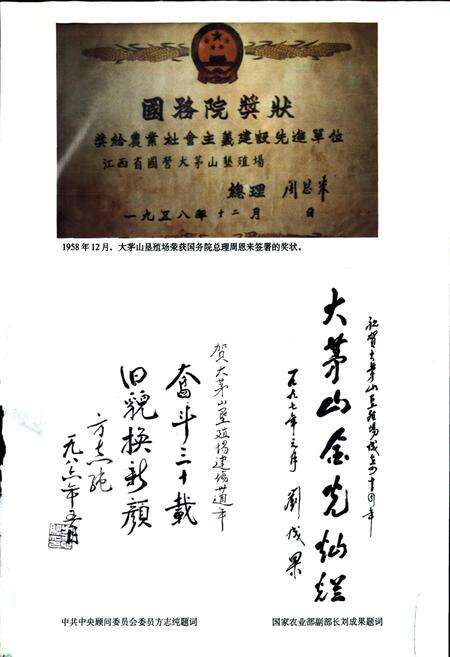 國務院獎狀
獎給農業社會主義建設先進單位
江西省國營大茅山墾殖場
總理 周恩來
一九五八年十二月 日
1958年12月，大茅山垦殖场荣获国务院总理周恩来签署的奖状。
祝贺大茅山垦殖场成立四十周年
大茅山金光灿烂
一九九七年三月 劉成果
賀大茅山垦殖場建場卅週年
奮斗三十載
旧貌换新颜
方志純
一九八六年五月
中共中央顾问委员会委员方志纯题词
国家农业部副部长刘成果题词